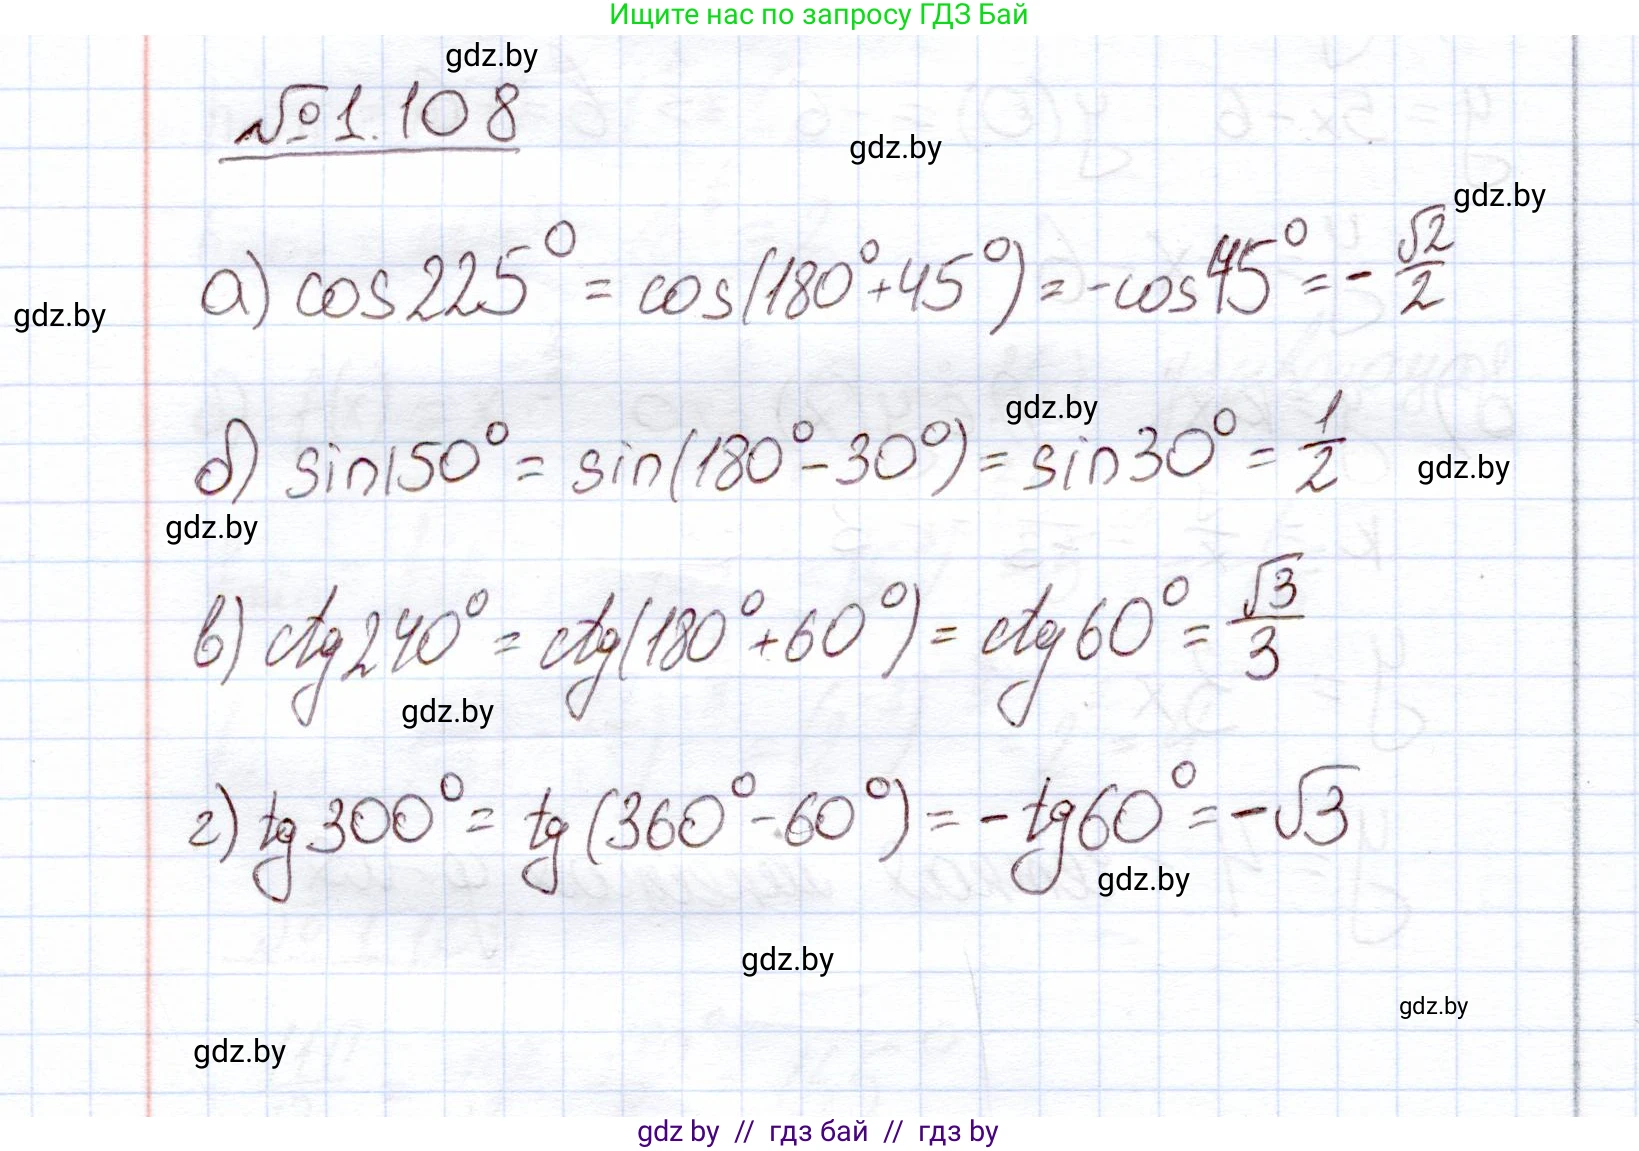 Ищите нас по запросу ГДЗ Бай
gdz.by
№1.108
gdz.by
gdz.by
а) cos225° = cos(180°+45°) = -cos45° = -√2/2
gdz.by
gdz.by
б) sin150° = sin(180°-30°) = sin30° = 1/2
gdz.by
gdz.by
в) ctg240° = ctg(180°+60°) = ctg60° = √3/3
gdz.by
г) tg300° = tg(360°-60°) = -tg60° = -√3
gdz.by
gdz.by
gdz.by
gdz.by
gdz by // гдз бай // гдз by